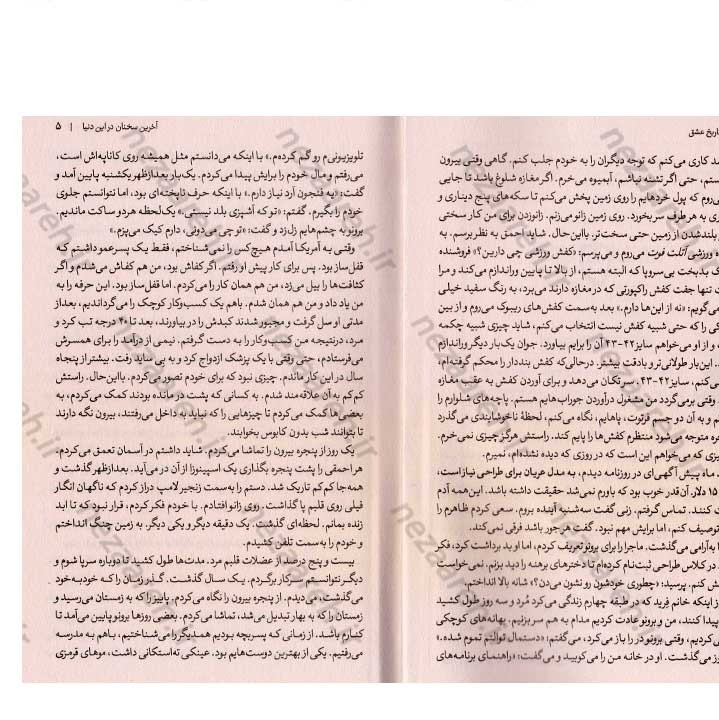 تاریخ عشق
کاری می‌کنم که توجه دیگران را به خودم جلب کنم. گاهی وقتی بیرون
حتی اگر تشنه نباشم، آبمیوه می‌خرم. اگر مغازه شلوغ باشد تا جایی
می‌روم که پول خردهایم را روی زمین پخش می‌کنم تا سکه‌های پنج دیناری و
به هر طرف سر بخورد. روی زمین زانو می‌زنم. زانو زدن برای من کار سختی
بلند شدن از زمین حتی سخت‌تر. بااین‌حال. شاید احمق به نظر برسم. به
ورزشی اتلت فوت می‌روم و می‌پرسم: «کفش ورزشی چی دارین؟» فروشنده
بدبخت بی‌سروپا که البته هستم، از بالا تا پایین وراندازم می‌کند و مرا
تنها جفت کفش راکپورتی که در مغازه دارند می‌برد، به رنگ سفید خیلی
می‌گویم: «نه از این‌ها دارم.» بعد به سمت کفش‌های ریبوک می‌روم و از بین
را که حتی شبیه کفش نیست انتخاب می‌کنم، شاید چیزی شبیه چکمه
و از او می‌خواهم سایز ۴۲-۴۳ آن را برایم بیاورد. جوان یک‌بار دیگر وراندازم
این بار طولانی‌تر و بادقت بیشتر. درحالی‌که کفش بنددار را محکم گرفته‌ام،
می‌کنم، سایز ۴۲-۴۳. سر تکان می‌دهد و برای آوردن کفش به عقب مغازه
وقتی برمی‌گردد من مشغول درآوردن جوراب‌هایم هستم. پاچه‌های شلوارم را
و به آن دو جسم فرتوت، پاهایم، نگاه می‌کنم، لحظهٔ ناخوشایندی می‌گذرد
متوجه می‌شود منتظرم کفش‌ها را پایم کند. راستش هرگز چیزی نمی‌خرم.
که می‌خواهم این است که در روزی که دیده نشده‌ام، نمیرم.
ماه پیش آگهی‌ای در روزنامه دیدم، به مدل عریان برای طراحی نیاز است،
۱۵ دلار. آن‌قدر خوب بود که باورم نمی‌شد حقیقت داشته باشد. این‌همه آدم
کنند. تماس گرفتم. زنی گفت سه‌شنبه آینده بروم. سعی کردم ظاهرم را
توصیف کنم، اما برایش مهم نبود. گفت هر جور باشد فرقی نمی‌کند.
به‌آرامی می‌گذشت. ماجرا را برای برونو تعریف کردم، اما او بد برداشت کرد، فکر
در کلاس طراحی ثبت‌نام کرده‌ام تا دخترهای برهنه را دید بزنم. نمی‌خواست
کنم. پرسید: «چطوری خودشون رو نشون می‌دن؟» شانه بالا انداختم.
از اینکه خانم فِرید که در طبقه چهارم زندگی می‌کرد مُرد و سه روز طول کشید
پیدا کنند، من و برونو عادت کردیم مدام به هم سر بزنیم. بهانه‌های کوچکی
می‌کردیم، وقتی برونو در را باز می‌کرد، می‌گفتم: «دستمال توالتم تموم شده.»
می‌گذشت. او در خانه من را می‌کوبید و می‌گفت: «راهنمای برنامه‌های
آخرین سخنان در این دنیا | ۵
تلویزیونی‌م رو گم کرده‌م.» با اینکه می‌دانستم مثل همیشه روی کاناپه‌اش است،
می‌رفتم و مال خودم را برایش پیدا می‌کردم. یک‌بار بعدازظهر یکشنبه پایین آمد و
گفت: «یه فنجون آرد نیاز دارم.» با اینکه حرف ناپخته‌ای بود، اما نتوانستم جلوی
خودم را بگیرم، گفتم: «تو که آشپزی بلد نیستی.» یک‌لحظه هردو ساکت ماندیم.
برونو به چشم‌هایم زل زد و گفت: «تو چی می‌دونی، دارم کیک می‌پزم.»
وقتی به آمریکا آمدم هیچ‌کس را نمی‌شناختم، فقط یک پسرعمو داشتم که
قفل‌ساز بود. پس برای کار پیش او رفتم. اگر کفاش بود، من هم کفاش می‌شدم و اگر
کثافت‌ها را بیل می‌زد، من هم همان کار را می‌کردم. اما قفل‌ساز بود. این حرفه را به
من یاد داد و من هم همان شدم. باهم یک کسب‌وکار کوچک را می‌گرداندیم، بعد از
مدتی او سل گرفت و مجبور شدند کبدش را در بیاورند، بعد تا ۴۰ درجه تب کرد و
مرد، درنتیجه من کسب‌وکار را به دست گرفتم. نیمی از درآمد را برای همسرش
می‌فرستادم، حتی وقتی با یک پزشک ازدواج کرد و به بی ساید رفت. بیشتر از پنجاه
سال در این کار ماندم. چیزی نبود که برای خودم تصور می‌کردم. بااین‌حال. راستش
کم‌کم به آن علاقه‌مند شدم. به کسانی که پشت در مانده بودند کمک می‌کردم، به
بعضی‌ها کمک می‌کردم تا چیزهایی را که نباید به داخل می‌رفتند، بیرون نگه دارند
تا بتوانند شب بدون کابوس بخوابند.
یک روز از پنجره بیرون را تماشا می‌کردم. شاید داشتم در آسمان تعمق می‌کردم.
هر احمقی را پشت پنجره بگذاری یک اسپینوزا از آن در می‌آید. بعدازظهر گذشت و
همه‌جا کم‌کم تاریک شد. دستم را به‌سمت زنجیر لامپ دراز کردم که ناگهان انگار
فیلی روی قلبم پا گذاشت. روی زانو افتادم. با خودم فکر کردم، قرار نبود که تا ابد
زنده بمانم. لحظه‌ای گذشت. یک دقیقه دیگر و یکی دیگر. به زمین چنگ انداختم
و خودم را به‌سمت تلفن کشیدم.
بیست و پنج درصد از عضلات قلبم مرد. مدت‌ها طول کشید تا دوباره سرپا شوم و
دیگر نتوانستم سر کار برگردم. یک سال گذشت. گذر زمان را که خودبه‌خود
می‌گذشت، می‌دیدم. از پنجره بیرون را نگاه می‌کردم. پاییز را که به زمستان می‌رسید و
زمستان را که به بهار تبدیل می‌شد، تماشا می‌کردم. بعضی روزها برونو پایین می‌آمد تا
کنارم باشد. از زمانی که پسربچه بودیم همدیگر را می‌شناختیم، باهم به مدرسه
می‌رفتیم. یکی از بهترین دوست‌هایم بود. عینکی ته‌استکانی داشت، موهای قرمزی